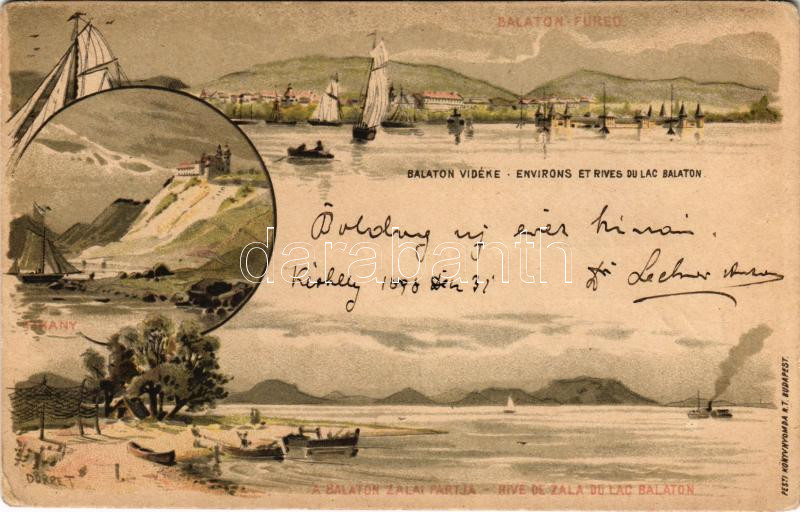 BALATON-FÜRED
BALATON VIDÉKE - ENVIRONS ET RIVES DU LAC BALATON.
Boldog uj évet kiván.
darabanth
1898 Dec 31
Dr Lechner
TIHANY
DORRET
A BALATON ZALAI PARTJA - RIVE DE ZALA DU LAC BALATON
PESTI KÖNYVNYOMDA R.T. BUDAPEST.